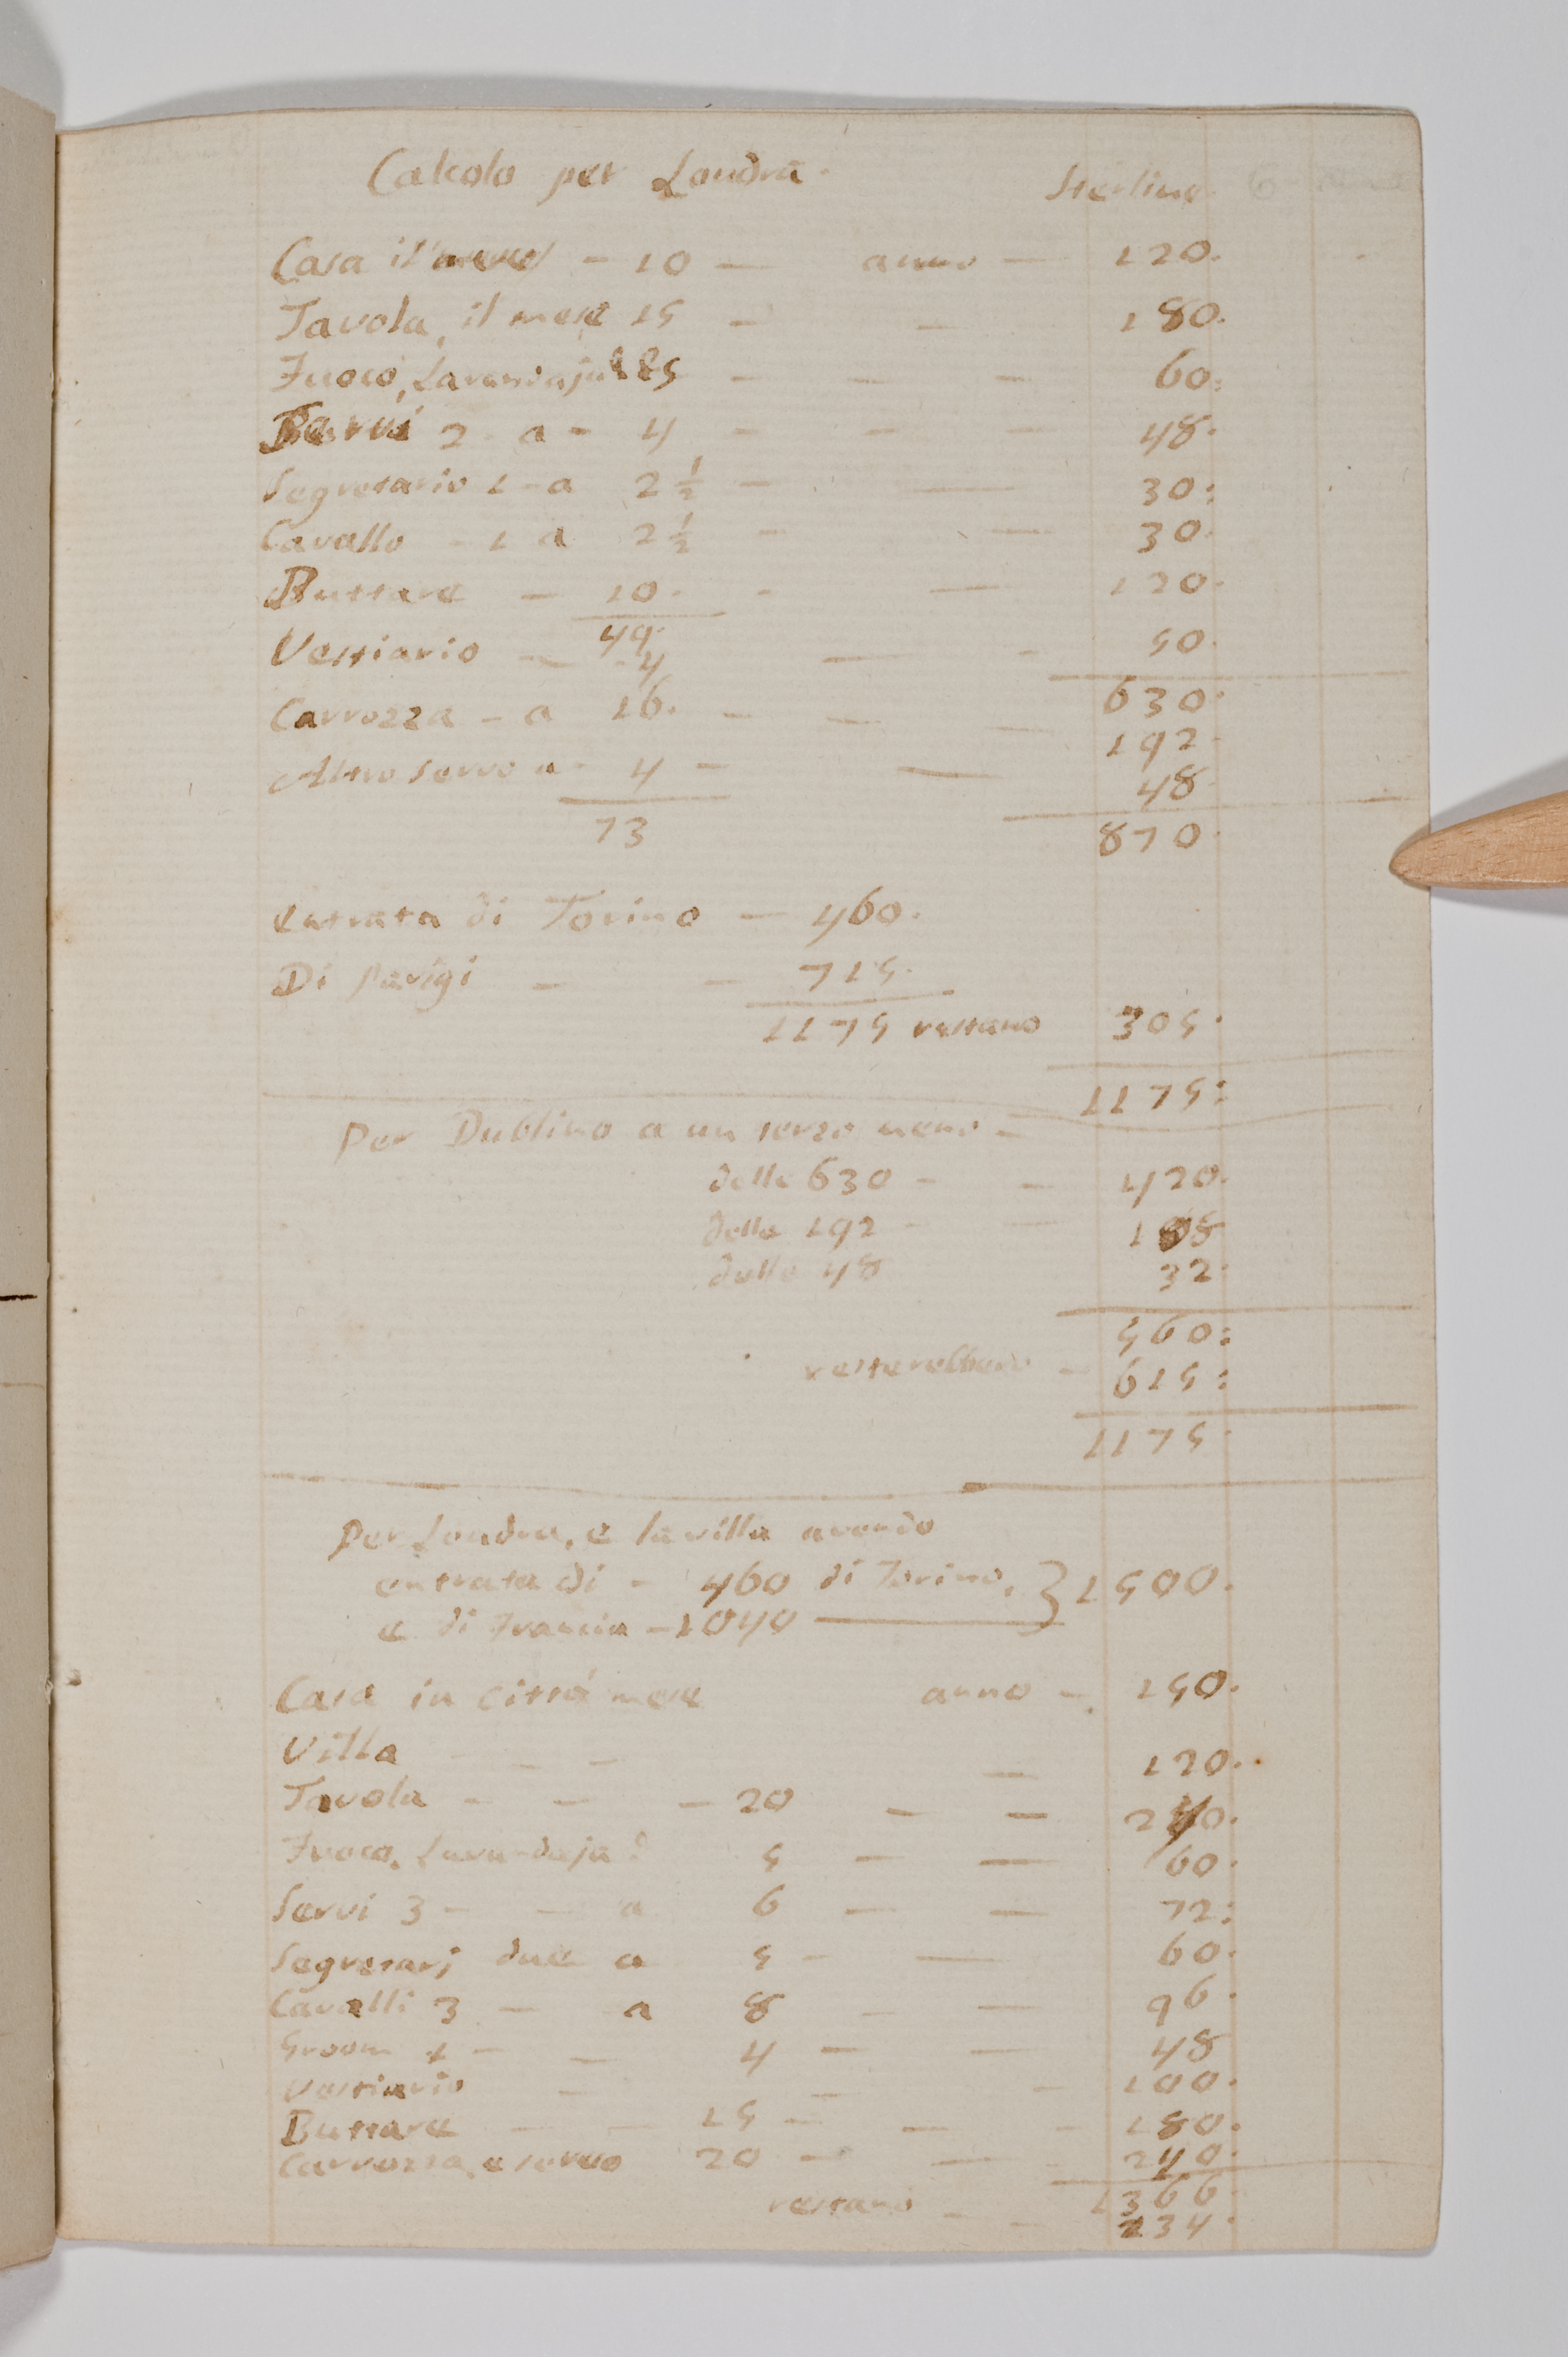 Calcolo per Londra. Sterline.
Casa il mese - 10 — anno — 120.
Tavola, il mese 15 — — 180.
Fuoco, Lavandaja 5 — — — 60:
Servi 2 - a - 4 — — — 48.
Segretario 1 - a 2 ½ — — 30:
Cavallo - 1 a 2 ½ — — 30.
Buttare — 10. - — 120.
49.
Vestiario — 4 — - 50.
630.
Carrozza - a 16. - — — 192.
Altro servo a - 4 — — 48.
73 870.
entrata di Torino — 460.
Di Parigi — — 715.
1175 restano 305.
1175:
Per Dublino a un terzo meno —
delle 630 — — 420.
delle 192 — — 108
delle 48 32.
560:
resterebbero — 615:
1175.
Per Londra, e la villa avendo
entrata di - 460 di Torino, } 1500.
e di Francia - 1040 —
Casa in città mese anno — 150.
Villa — — — — 120.
Tavola — — — 20 — — 240.
Fuoco, Lavandaja 5 — — 60.
Servi 3 — — a 6 — — 72:
Segretarj due a 5 — — 60.
Cavalli 3 — a 8 — — 96.
Groom 1 — — 4 — — 48
Vestiario — — — 100.
Buttare — — 15 — — - 180.
Carrozza, e servo 20 — — 240.
1366
restano — — 134.